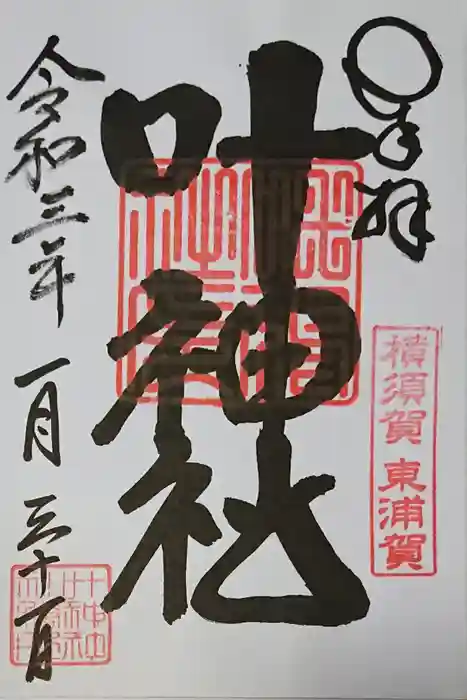 奉拝
横須賀 東浦賀
叶神社
令和三年 一月 三十一日